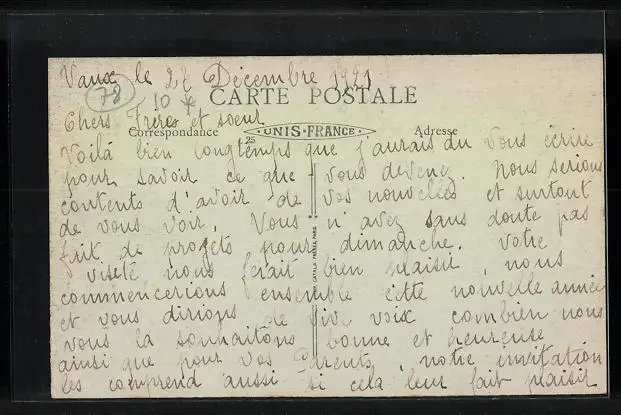 Vaux le 27 Décembre 1921
78
10 *
CARTE POSTALE
Chers Frères et soeur
Correspondance
UNIS-FRANCE
Adresse
25
Voilà bien longtemps que j'aurais du vous écrire
pour savoir ce que vous devenez. Nous serions
contents d'avoir de vos nouvelles et surtout
de vous voir. Vous n'avez sans doute pas
fait de projets pour dimanche. votre
visite nous ferait bien plaisir, nous
commencerions ensemble cette nouvelle année
et vous dirions de vive voix combien nous
vous la souhaitons bonne et heureuse
ainsi que pour vos Parents, notre invitation
les comprend aussi si cela leur fait plaisir
CATALA FRÈRES, PARIS